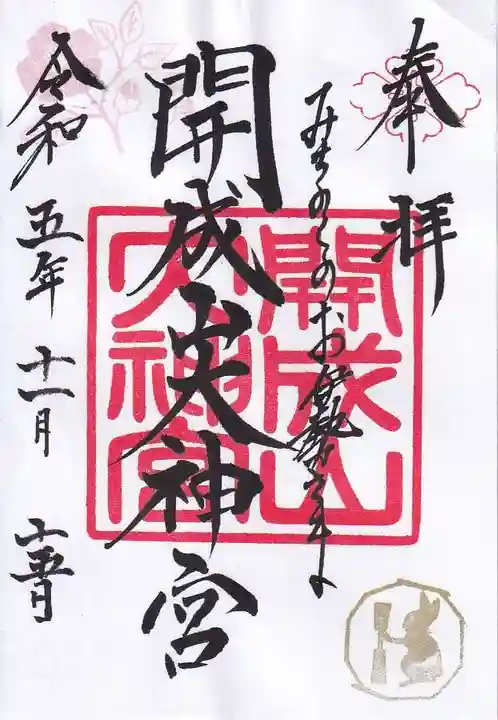 奉拝
みちのくのおお伊勢さま
開成山大神宮
開成山
大神宮
令和五年十一月十五日